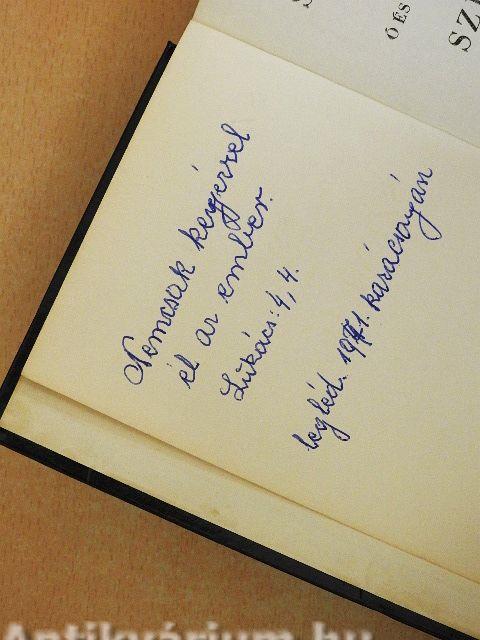 Nemcsak kenyérrel
él az ember.
Lukács: 4, 4.
Cegléd. 1971. karácsonyán
Ó ÉS
SZ
Antikvárium.hu